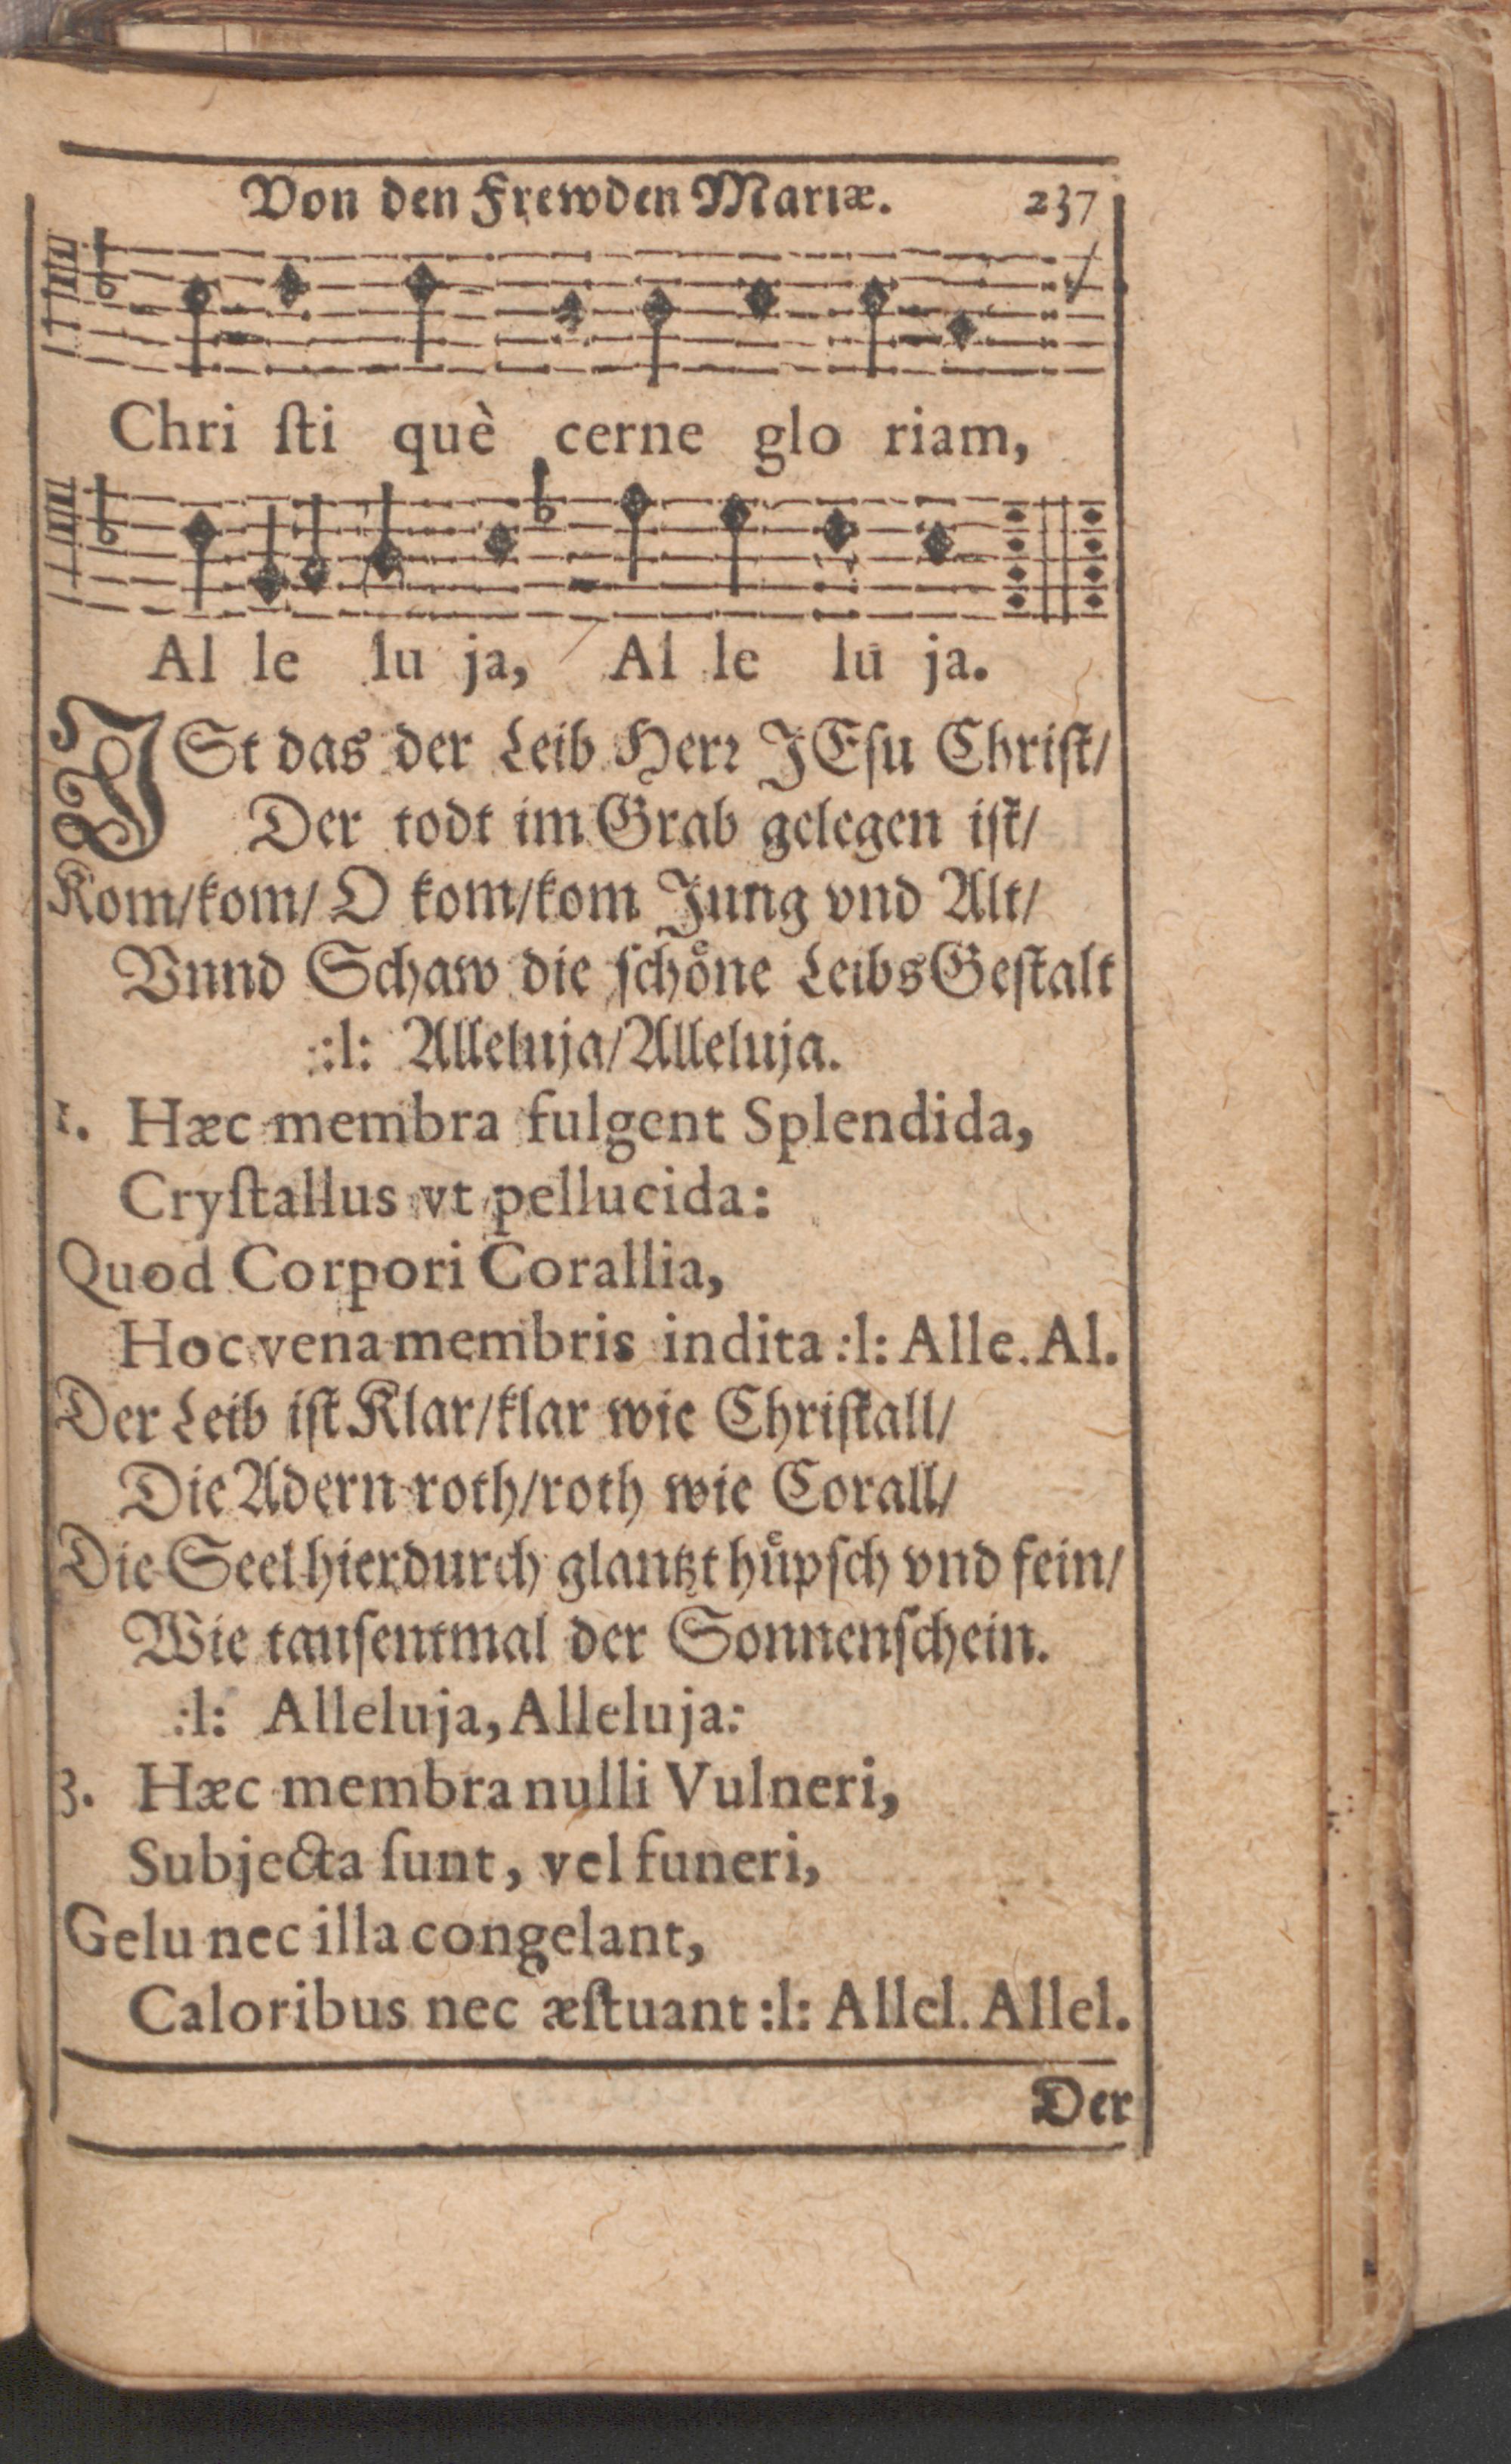 Von den Frewden Mariæ. 237
Chri ſti què cerne glo riam,
Al le lu ja, Al le lu ja.
JSt das der Leib Herꝛ JEſu Chriſt/
Der todt im Grab gelegen iſt/
Kom/kom/ O kom/kom Jung vnd Alt/
Vnnd Schaw die ſchoͤne LeibsGeſtalt
:l: Alleluja/Alleluja.
2. Hæc membra fulgent Splendida,
Cryſtallus vt pellucida:
Quod Corpori Corallia,
Hoc vena membris indita :l: Alle. Al.
Der Leib iſt Klar/klar wie Chriſtall/
Die Adern roth/roth wie Corall/
Die Seel hierdurch glantzt huͤpſch vnd fein/
Wie tauſentmal der Sonnenſchein.
:l: Alleluja, Alleluja:
3. Hæc membra nulli Vulneri,
Subjecta ſunt, vel funeri,
Gelu nec illa congelant,
Caloribus nec æſtuant :l: Allel. Allel.
Der